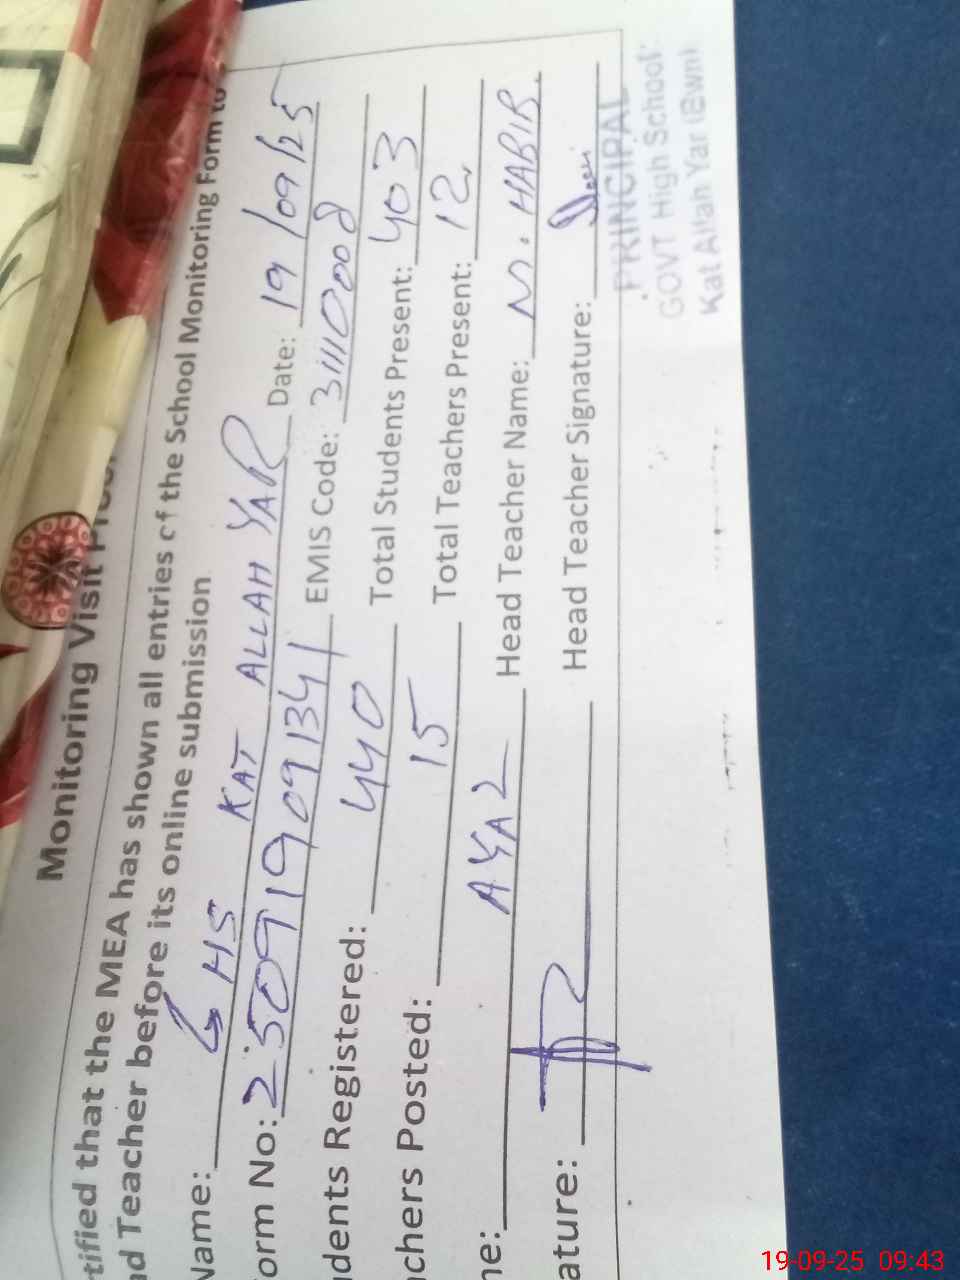 Monitoring Visit
tified that the MEA has shown all entries of the School Monitoring Form to
nd Teacher before its online submission
Name: GHS KAT ALLAH YAR Date: 19/09/25
orm No: 250919091341 EMIS Code: 31110008
udents Registered: 440 Total Students Present: 403
chers Posted: 15 Total Teachers Present: 12
ne: AYAZ Head Teacher Name: M. HABIB
ature: Head Teacher Signature:
PRINCIPAL
GOVT High School
Kat Allah Yar (Bwn)
19-09-25 09:43